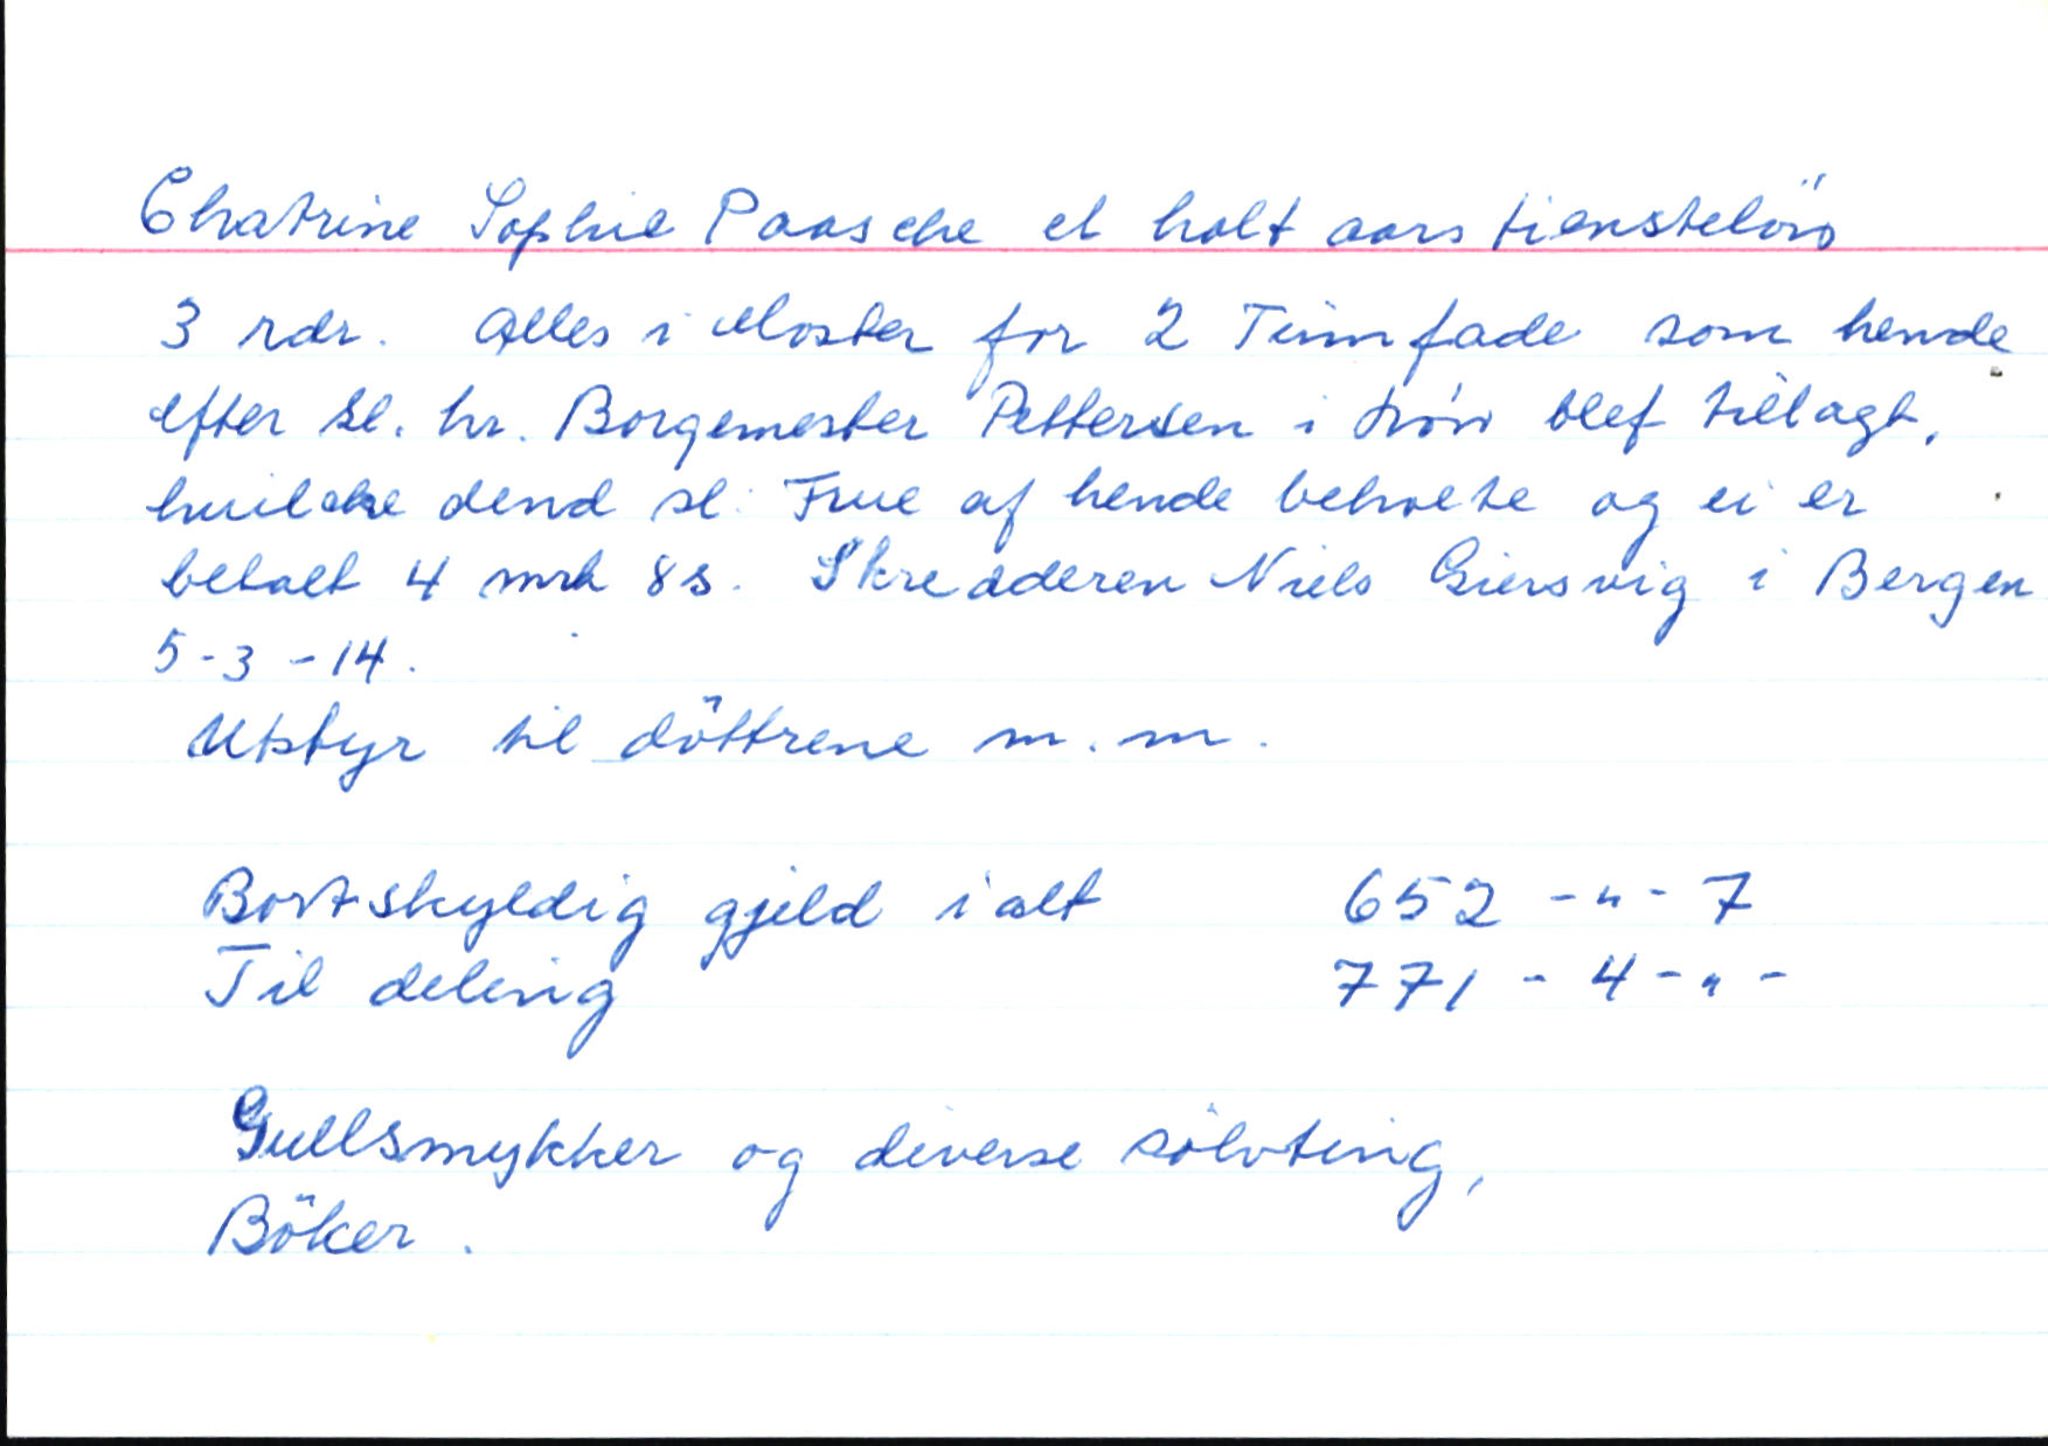 Chatrine Sophie Paasche et halt aars tienstelön
3 rdr. Alles i Moster for 2 Tinnfade som hende
efter sl. hr. Borgemester Pettersen i blef tillagt,
huilche dend sl: Frue af hende beholte og ei er
betalt 4 mrk 8 s. Skredderen Niels Giersvig i Bergen
5-3-14.
Utstyr til döttrene m.m.
Bortskyldig gjeld ialt 652 - " - 7
Til deling 771 - 4 - " -
Gullsmykker og diverse sölvting,
Böker.